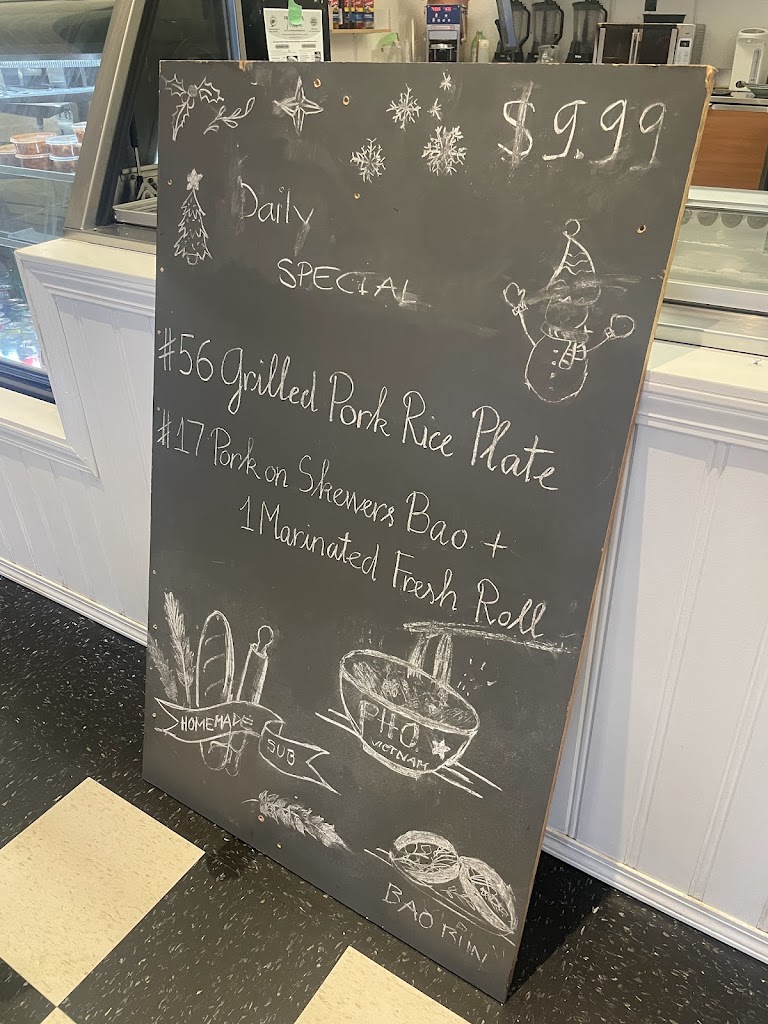 $9.99
Daily
SPECIAL
#56 Grilled Pork Rice Plate
#17 Pork on Skewers Bao +
1 Marinated Fresh Roll
HOMEMADE
SUB
PHO
VIETNAM
BAO